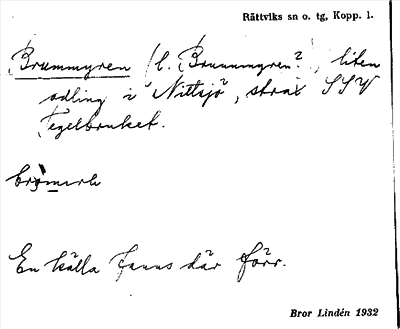 Rättviks sn o. tg, Kopp. l.
Brummyren (l. Brunnmyren?), liten
odling i Nittsjö, strax SSV
Tegelbruket.
En källa fanns där förr.
Bror Lindén 1932